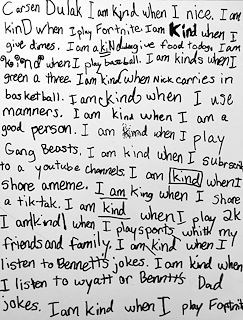 Carsen Dulak I am kind when I nice. I am
kinD when I play Fortnite. I am kind when I
give dimes. I am a kind give food today. I am
kind when I play baseball. I am kinds when I
green a three. I am kind when nick carries in
basketball. I am kind when I use
manners. I am kind when I am a
good person. I am kind when I play
Gang Beasts. I am kind when I subrscribe
to a youtube channels I am kind when I
share a meme. I am king when I share
a tik-tak. I am kind when I play 2k
I am kind when I play sports whith my
friends and family. I am kind when I
listen to Bennett's jokes. I am kind when
I listen to wyatt or Benntts Dad
jokes. I am kind when I play Fortnite